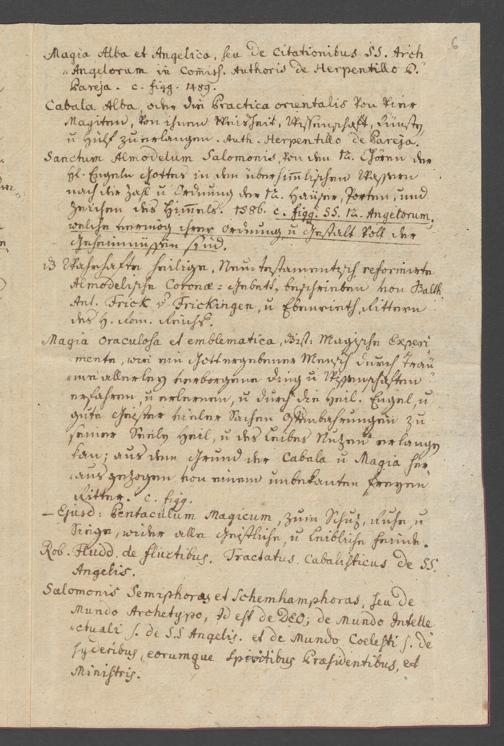 6
Magia Alba et Angelica, seu de Citationibus SS. Arch
Angelorum in Com̄iss. Authoris de Herpentillo
Pareja. c. figg. 1489.
Cabala Alba, oder die Practica orientalis von vier
Magiten, von ihnen Weisheit, Wissenschaft, Künste
u Hülf zu erlangen. Auth. Herpentillo de Pareja.
Sanctum Almodelum Salomonis, von den 12. Chören der
Hl. Engeln Gottes in den übersim̄lischen Wassern
nach der Zahl u Ordnung der 12. Häuser, Porten, und
Zeichen des Him̄els. 1586. c. figg. SS. 12. Angelorum,
welche vermög ihrer Ordnung u Gestalt voll der
Geheimnüssen synd.
Wahrhafte heilige, Neu testamentisch reformirte
Almodelische Coronæ = Gebett, beschrieben von Balth.
Ant. Frick v Frickingen, u Rittern
des H. Röm. Reichs.
Magia oraculosa et emblematica, Magische Experi
mente, wie ein Gottergebener Mensch durch Träu
me allerley verborgene Ding u Wissenschaften
erfahren, u erlernen, u durch die Heil. Engel, u
gute Geister vieler Sachen Offenbahrungen zu
seiner Seele Heil, u des Leibes Nutzen erlangen
kan; aus dem Grund der Cabala u Magia her=
ausgezogen von einem unbekanten freyen
Ritter. c. figg.
— Ejusd: Pentaculum Magicum, zum Schutz, Ruhe, u
Siege, wider alle Geistliche, u leibliche feinde.
Rob. Fludd de fluctibus. Tractatus Cabalisticus de SS.
Angelis.
Salomonis Semiphoras et Schemhamphoras, seu de
Mundo Archetypo, id est de DEO; de Mundo Intelle
ctuali s. de SS Angelis. et de Mundo Coelesti s. de
Syderibus, eorumque Spiritibus Præsidentibus, et
Ministris.